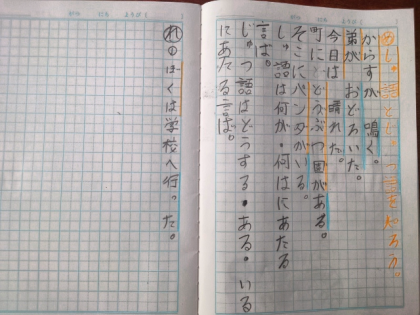 めあて 主語とじゅつ語を知ろう。
からすが 鳴く。
弟が おどろいた。
今日は 晴れた。
町に どうぶつ園がある。
そこにパンダがいる。
しゅ語は何が・何はにあたる
言ば。
じゅつ語はどうする・ある・いる
にあたる言ば。
れの ぼくは学校へ行った。